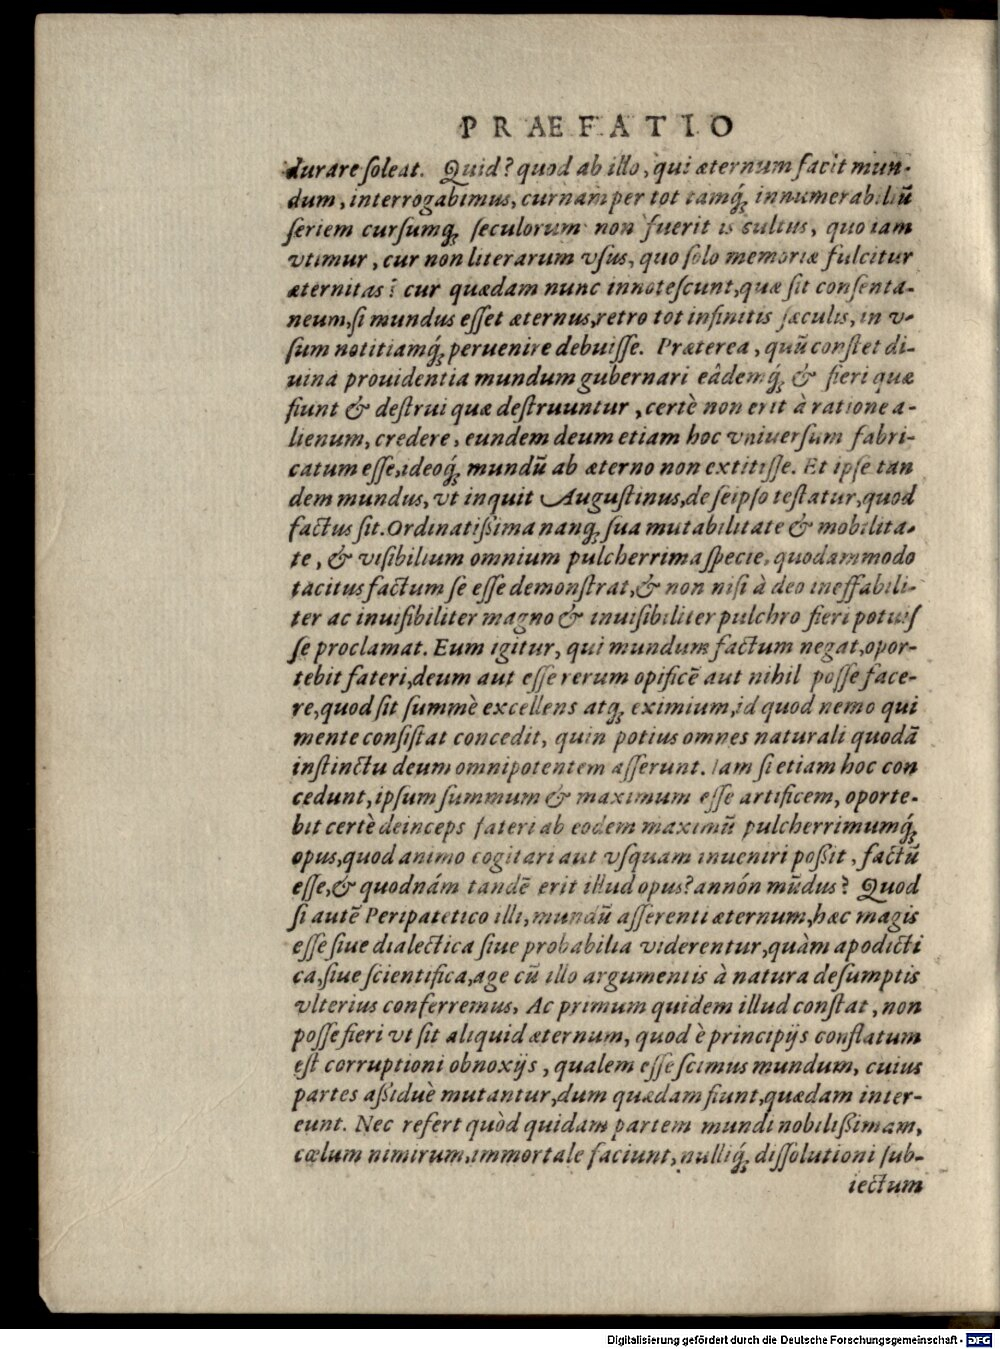 PRAEFATIO
durare ſoleat. Quid? quod ab illo, qui æternum facit mun-
dum, interrogabimus, curnam per tot tamq́; innumerabiliũ
ſeriem curſumq́; ſeculorum non fuerit is cultus, quo iam
vtimur, cur non literarum vſus, quo ſolo memoriæ fulcitur
æternitas? cur quædam nunc innoteſcunt, quæ ſit conſenta-
neum, ſi mundus eſſet æternus, retro tot infinitis ſæculis, in v-
ſum notitiamq́; peruenire debuiſſe. Præterea, quũ conſtet di-
uina prouidentia mundum gubernari eâdemq́; & fieri quæ
fiunt & deſtrui quæ deſtruuntur, certè non erit à ratione a-
lienum, credere, eundem deum etiam hoc vniuerſum fabri-
catum eſſe, ideoq́; mundũ ab æterno non extitiſſe. Et ipſe tan
dem mundus, vt inquit Auguſtinus, de ſeipſo teſtatur, quod
factus ſit. Ordinatißima nanq; ſua mutabilitate & mobilita-
te, & viſibilium omnium pulcherrima ſpecie, quodammodo
tacitus factum ſe eſſe demonſtrat, & non niſi à deo ineffabili-
ter ac inuiſibiliter magno & inuiſibiliter pulchro fieri potuiſ
ſe proclamat. Eum igitur, qui mundum factum negat, opor-
tebit fateri, deum aut eſſe rerum opificẽ aut nihil poſſe face-
re, quod ſit ſummè excellens atq; eximium, id quod nemo qui
mente conſiſtat concedit, quin potius omnes naturali quodã
inſtinctu deum omnipotentem aſſerunt. Iam ſi etiam hoc con
cedunt, ipſum ſummum & maximum eſſe artificem, oporte-
bit certè deinceps fateri ab eodem maximũ pulcherrimumq́;
opus, quod animo cogitari aut vſquam inueniri poßit, factũ
eſſe, & quodnám tandẽ erit illud opus? annón mũdus? Quod
ſi autẽ Peripatetico illi, mundũ aſſerenti æternum, hæc magis
eſſe ſiue dialectica ſiue probabilia viderentur, quàm apodicti
ca, ſiue ſcientifica, age cũ illo argumentis à natura deſumptis
vlterius conferremus, Ac primum quidem illud conſtat, non
poſſe fieri vt ſit aliquid æternum, quod è principijs conflatum
eſt corruptioni obnoxijs, qualem eſſe ſcimus mundum, cuius
partes aßiduè mutantur, dum quædam fiunt, quædam inter-
eunt. Nec refert quòd quidam partem mundi nobilißimam,
cœlum nimirum, immortale faciunt, nulliq́; diſſolutioni ſub-
iectum
Digitalisierung gefördert durch die Deutsche Forschungsgemeinschaft - DFG